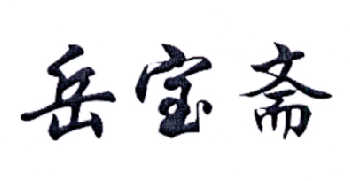 岳宝斋